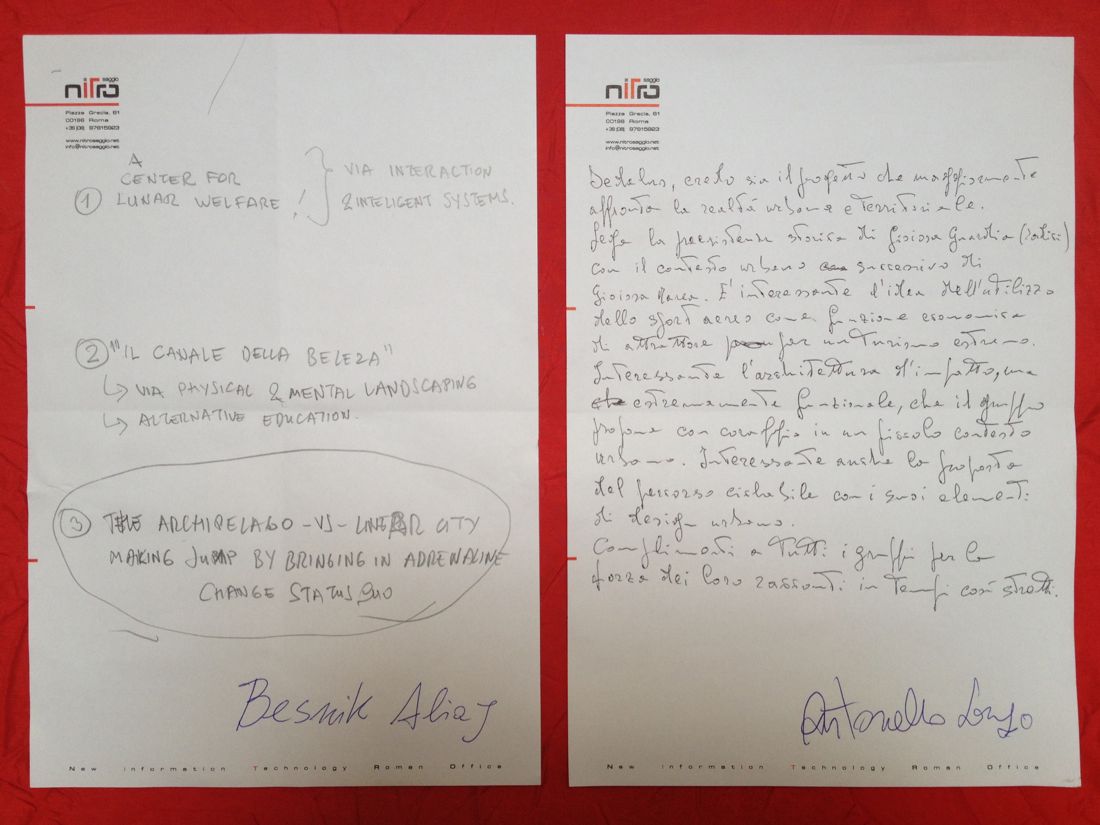 nitro
saggio
Piazza Grecia, 61
00196 Roma
www.nitrosaggio.net
info@nitrosaggio.net
① A CENTER FOR
LUNAR WELFARE !
VIA INTERACTION
& INTELIGENT SYSTEMS.
② "IL CANALE DELLA BELEZA"
↳ VIA PHYSICAL & MENTAL LANDSCAPING
↳ ALTERNATIVE EDUCATION.
③ THE ARCHIPELAGO -VS- LINEAR CITY
MAKING JUMP BY BRINGING IN ADRENALINE
CHANGE STATUS QUO
Besnik Aliaj
New Information Technology Roman Office
nitro
saggio
Piazza Grecia, 61
00196 Roma
www.nitrosaggio.net
info@nitrosaggio.net
Dedalus, credo sia il progetto che maggiormente
affronta la realtà urbana e territoriale.
Lega la preesistenza storica di Gioiosa Guardia (radici)
con il contesto urbano successivo di
Gioiosa Marea. E' interessante l'idea dell'utilizzo
dello sport aereo come funzione economica
di attrattore per un turismo estremo.
Interessante l'architettura d'impatto, ma
estremamente funzionale, che il gruppo
propone con coraggio in un piccolo contesto
urbano. Interessante anche la proposta
del percorso ciclabile con i suoi elementi
di design urbano.
Complimenti a tutti i gruppi per la
forza dei loro racconti in tempi così stretti.
Antonello Longo
New Information Technology Roman Office